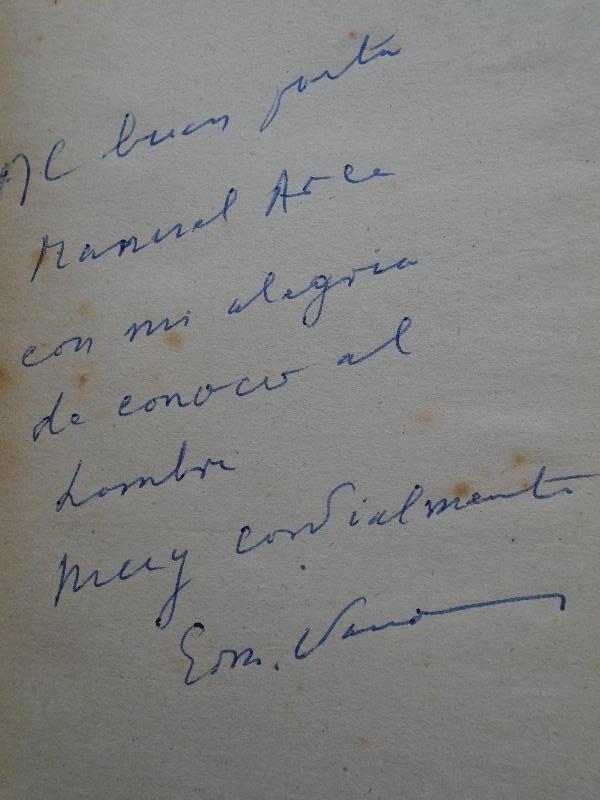 Al buen poeta
Manuel Arce
con mi alegria
de conocer al
hombre
muy cordialmente
Edm.